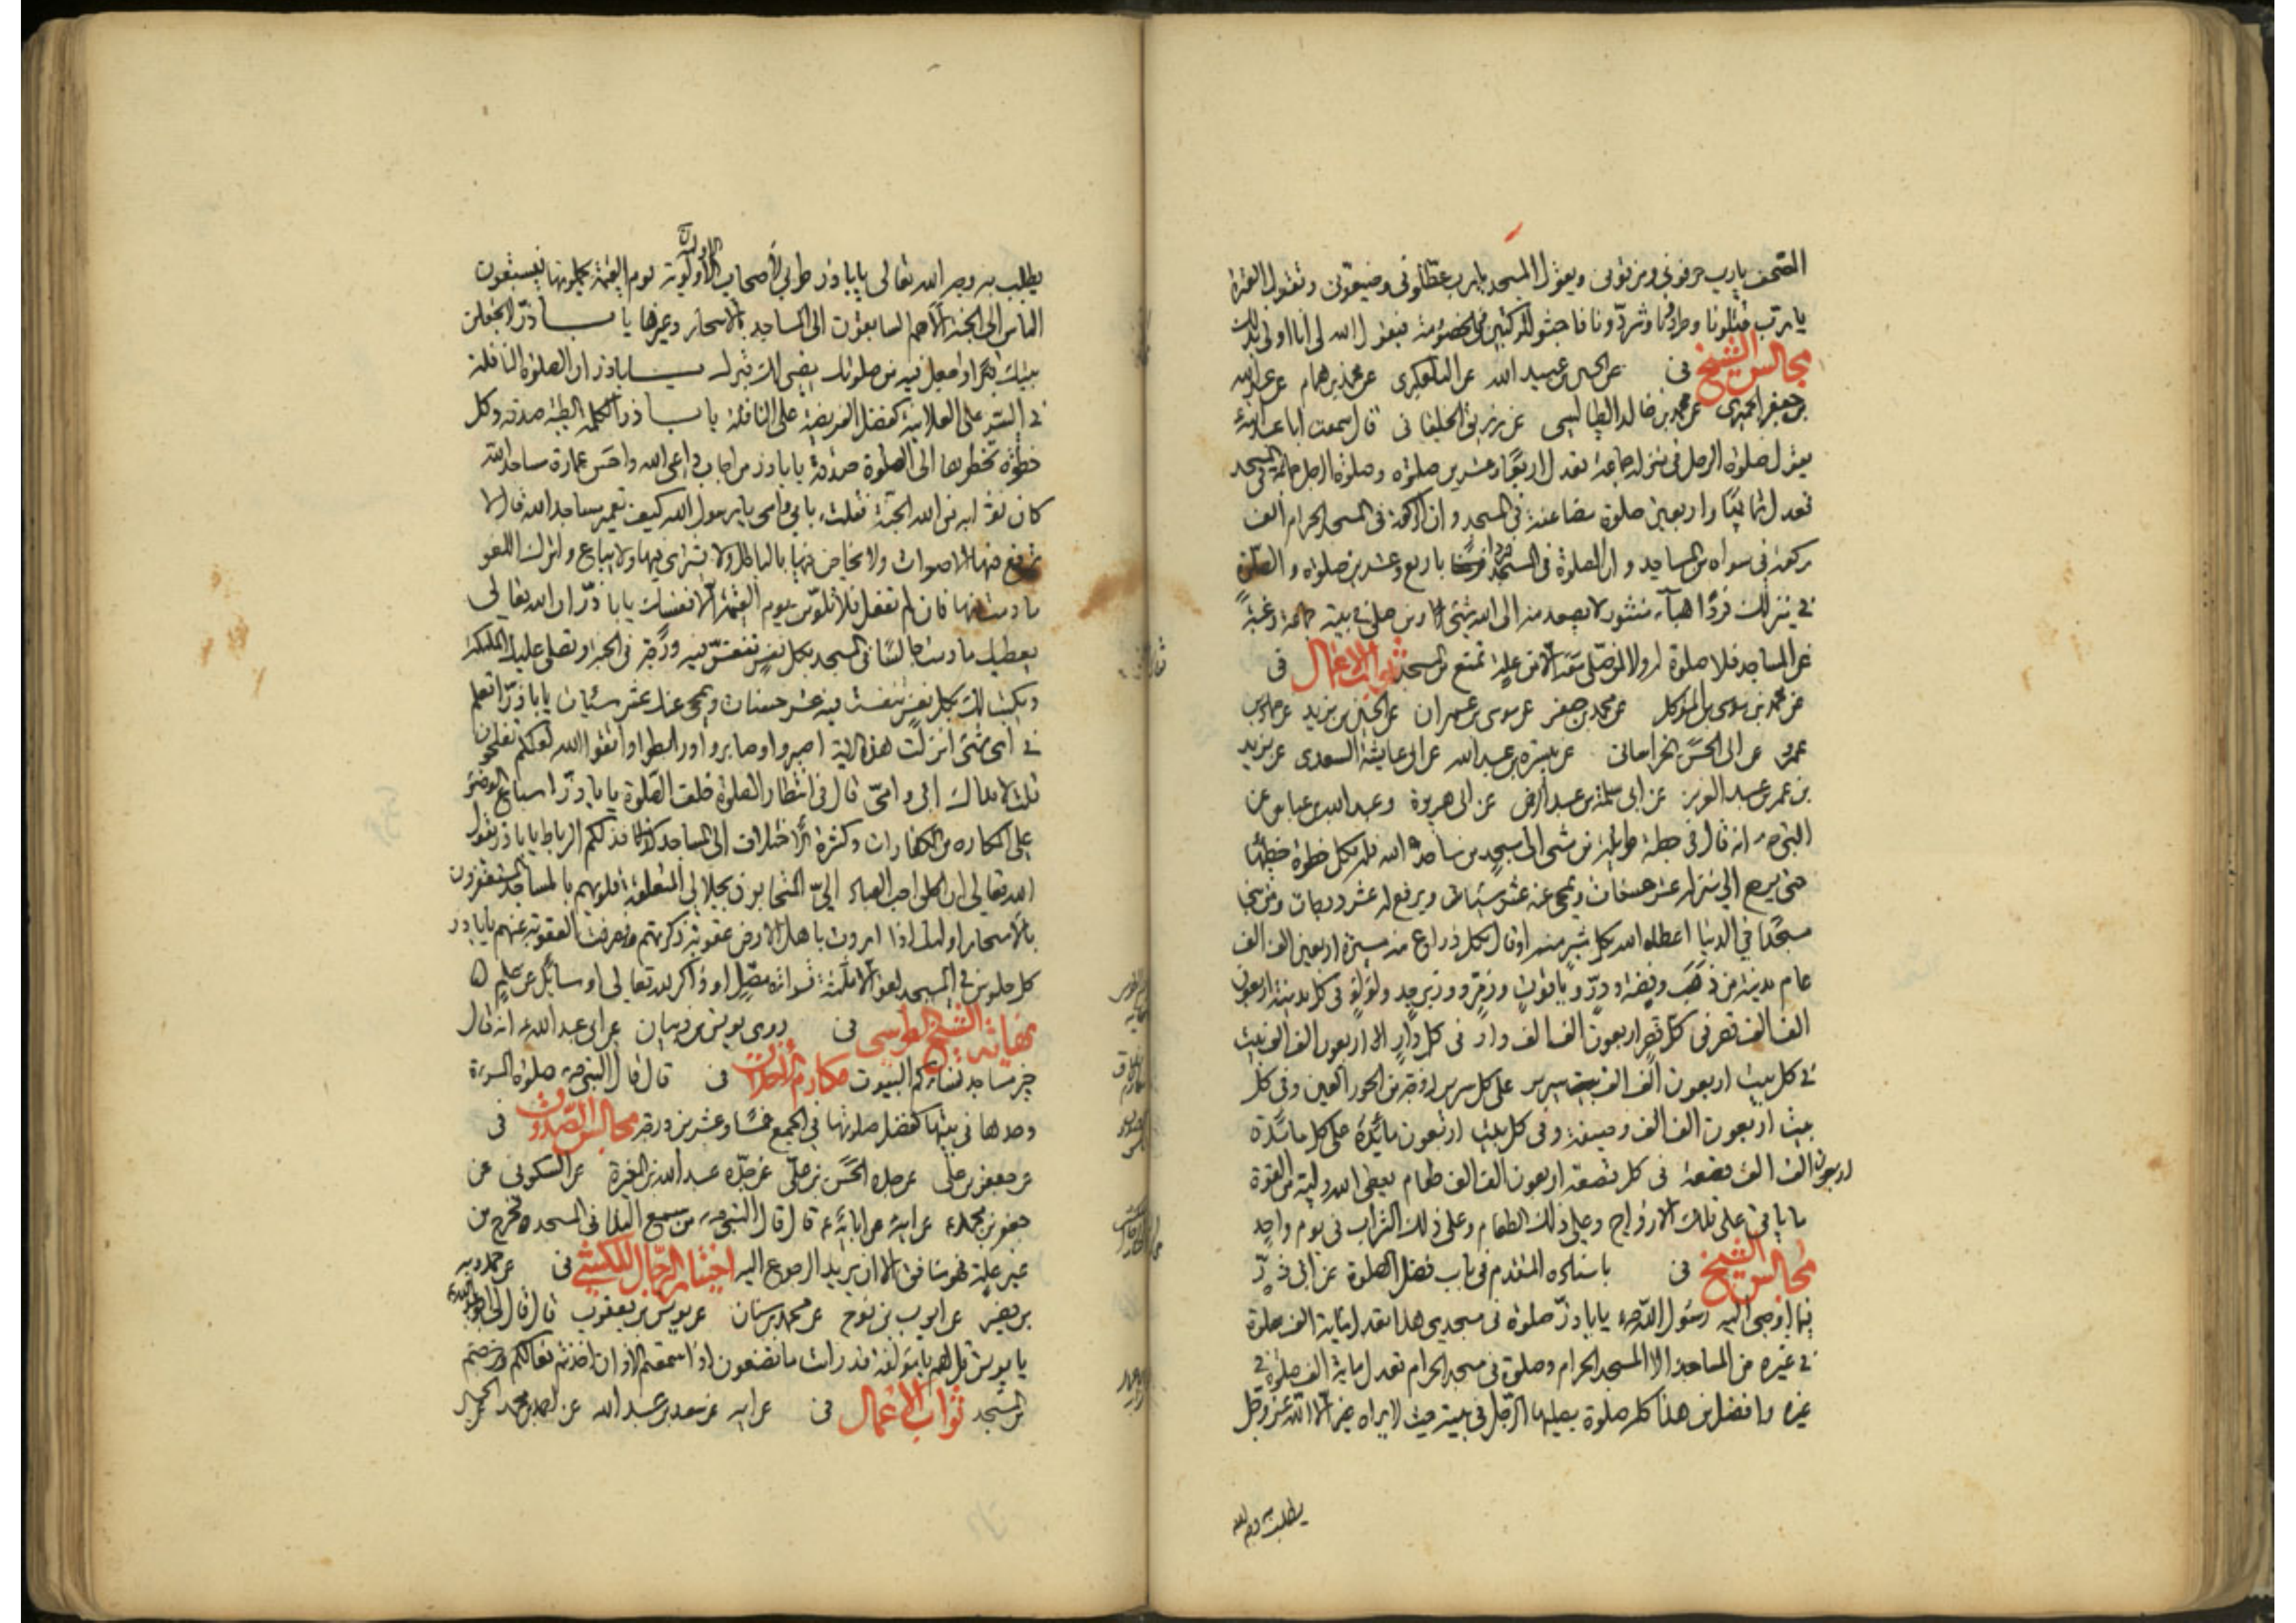 المصحف يا رب حرفوني ومزقوني ويقول المسجد يا رب عطلوني وضيعوني وتقول العترة
يا رب قتلونا وطردونا وشردونا فاجثوا للركبتين للخصومة فيقول الله لي انا اولى بذلك
مجالس الشيخ في عن الحسين بن عبيد الله عن التلعكبري عن محمد بن همام عن عبد الله
بن جعفر الحميري عن محمد بن خالد الطيالسي عن رزيق الخلقاني قال سمعت ابا عبد الله
يقول صلوة الرجل في منزله جماعة تعدل اربعا وعشرين صلوة وصلوة الرجل جماعة في المسجد
تعدل ثمانيا واربعين صلوة مضاعفة في المسجد وان الركعة في المسجد الحرام الف
ركعة في سواه من المساجد وان الصلوة في المسجد فردا باربع وعشرين صلوة والصلوة
في منزلك فردا هباء منثور لا يصعد منه الى الله شيء ومن صلى في بيته جماعة رغبة
عن المساجد فلا صلوة له ولا لمن صلى معه الا من علة تمنع من المسجد ثواب الاعمال في
عن محمد بن موسى بن المتوكل عن محمد بن جعفر عن موسى بن عمران عن الحسين بن يزيد عن حماد بن
عمرو عن ابي الحسن الخراساني عن ميسرة بن عبد الله عن ابي عايشة السعدي عن يزيد
بن عمر بن عبد العزيز عن ابي سلمة بن عبد الرحمن عن ابي هريرة وعبد الله بن عباس عن
النبي ص انه قال في خطبة طويلة من مشى الى مسجد من مساجد الله فله بكل خطوة خطاها
حتى يرجع الى منزله عشر حسنات ويمحى عنه عشر سيئات ويرفع له عشر درجات ومن بنى
مسجدا في الدنيا اعطاه الله بكل شبر منه او قال بكل ذراع منه مسيرة اربعين الف الف
عام مدينة من ذهب وفضة ودر وياقوت وزمرد وزبرجد ولؤلؤ في كل مدينة اربعون
الف الف قصر في كل قصر اربعون الف الف دار في كل دار اربعون الف الف بيت
في كل بيت اربعون الف الف سرير على كل سرير زوجة من الحور العين وفي كل
بيت اربعون الف الف وصيفة وفي كل بيت اربعون مائدة على كل مائدة
اربعون الف الف قصعة في كل قصعة اربعون الف الف طعام يعطي الله وليه من القوة
ما ياتي على تلك الازواج وعلى ذلك الطعام وعلى ذلك الشراب في يوم واحد
مجالس الشيخ في باسناده المتقدم في باب فضل الصلوة عن ابي ذر
فيما اوصى اليه رسول الله ص يا با ذر صلوة في مسجدي هذا تعدل مائة الف صلوة
في غيره من المساجد الا المسجد الحرام وصلوة في مسجد الحرام تعدل ماية الف صلوة في
غيره وافضل من هذا كله صلوة يصليها الرجل في بيته حيث لا يراه الا الله عز وجل
يطلب به وجه الله
يطلب به وجه الله تعالى يا با ذر طوبى لاصحاب الالوية يوم القيمة يحملونها فيسبقون
الناس الى الجنة الا هم السابقون الى المساجد بالاسحار وغيرها يا با ذر
في السر على العلانية كفضل الفريضة على النافلة يا با ذر الكلمة الطيبة صدقة وكل
خطوة تخطوها الى الصلوة صدقة يا با ذر من اجاب داعي الله واحسن عمارة مساجد الله
كان ثوابه من الله الجنة فقلت بابي وامي يا رسول الله كيف تعمر مساجد الله قال لا
ترفع فيها الاصوات ولا يخاض فيها بالباطل ولا يشترى فيها ولا يباع واترك اللغو
ما دمت فيها فان لم تفعل فلا تلومن يوم القيمة الا نفسك يا با ذر ان الله تعالى
يعطيك ما دمت جالسا في المسجد بكل نفس تنفس فيه درجة في الجنة وتصلي عليك الملئكة
ويكتب لك بكل نفس تنفست فيه عشر حسنات ويمحى عنك عشر سيئات يا با ذر اتعلم
في اي شيء انزلت هذه الاية اصبروا وصابروا ورابطوا واتقوا الله لعلكم تفلحون
قلت لا فداك ابي وامي قال في انتظار الصلوة خلف الصلوة يا با ذر اسباغ الوضوء
على المكاره من الكفارات وكثرة الاختلاف الى المساجد فذلكم الرباط يا با ذر يقول
الله تعالى ان احب العباد الي المتحابون بجلالي المتعلقة قلوبهم بالمساجد المستغفرون
بالاسحار اولئك اذا اردت باهل الارض عقوبة ذكرتهم فصرفت العقوبة عنهم يا با ذر
كل جلوس في المسجد لغو الا ثلاثة قراءة مصل او ذاكر لله تعالى او سائل عن علم
نهاية الشيخ الطوسي في روى يونس بن ظبيان عن ابي عبد الله ع انه قال
خير مساجد نسائكم البيوت مكارم الاخلاق في قال قال النبي ص صلوة المرءة
وحدها في بيتها كفضل صلوتها في الجمع خمسا وعشرين درجة مجالس الصدوق في
عن جعفر بن علي عن جده الحسن بن علي عن جده عبد الله بن المغيرة عن السكوني عن
جعفر بن محمد ع عن ابيه عن ابائه ع قال قال النبي ص من سمع النداء في المسجد فخرج من
غير علة فهو منافق الا ان يريد الرجوع اليه اختيار الرجال للكشي في عن حمدويه
بن نصير عن ايوب بن نوح عن محمد بن سنان عن يونس بن يعقوب قال قال لي ابو عبد الله
يا يونس قل لهم يا مؤلفة قد رايت ما تصنعون اذا سمعتم الاذان اخذتم نعالكم وخرجتم
من المسجد ثواب الاعمال في عن ابيه عن سعد بن عبد الله عن احمد بن محمد